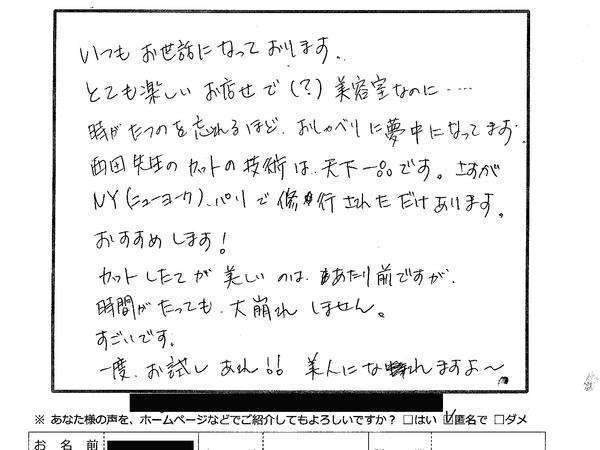 いつも お世話になっております。
とても楽しい お店せで(?) 美容室なのに……
時がたつのを忘れるほど、おしゃべりに夢中になってます。
西田先生の カットの技術は、天下一品です。さすが
NY(ニューヨーク)、パリで修行されただけあります。
おすすめします!
カットしたてが美しいのは、あたり前ですが、
時間がたっても、大崩れしません。
すごいです。
一度、お試しあれ!! 美人になれますよ〜
※ あなた様の声を、ホームページなどでご紹介してもよろしいですか? □はい ☑匿名で □ダメ
お 名 前